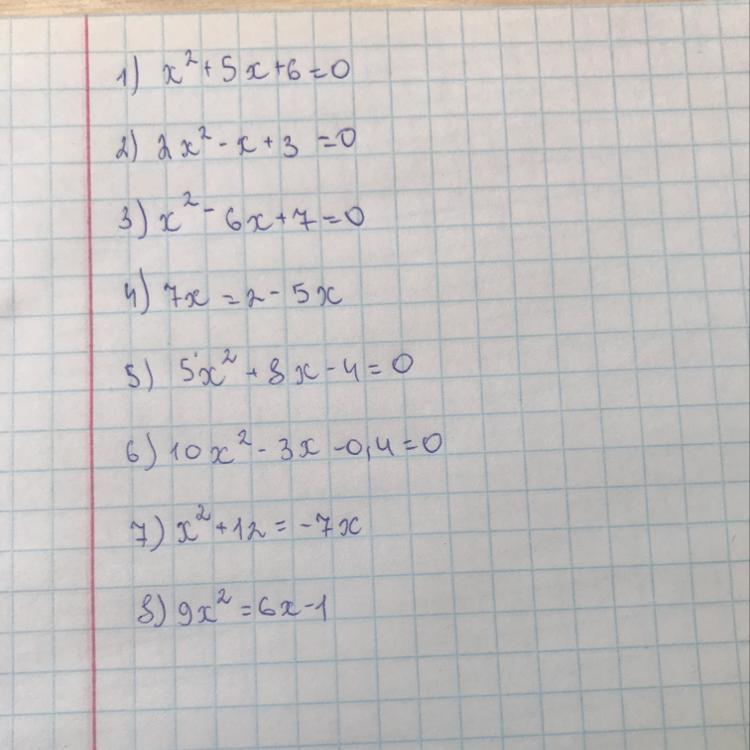 1) x² + 5x + 6 = 0
2) 2x² - x + 3 = 0
3) x² - 6x + 7 = 0
4) 7x = 2 - 5x
5) 5x² + 8x - 4 = 0
6) 10x² - 3x - 0,4 = 0
7) x² + 12 = -7x
8) 9x² = 6x - 1